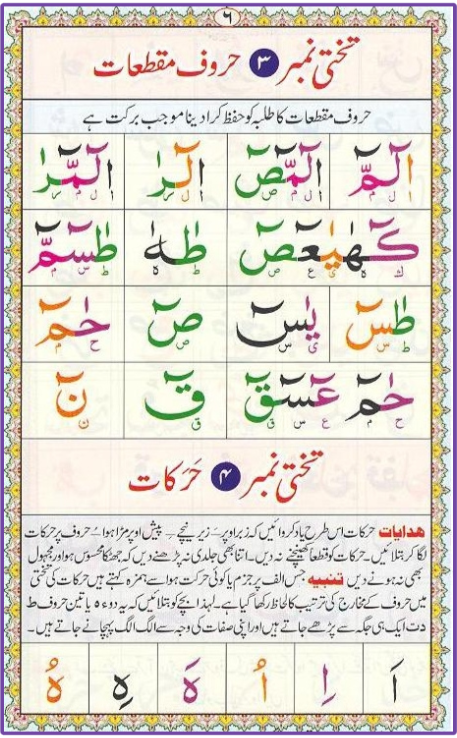 ۶
تختی نمبر ۳ حروف مقطعات
حروف مقطعات کا طلبہ کو حفظ کرا دینا موجب برکت ہے
الٓمّٓ الٓمّٓصٓ الٓرٰ الٓمّٓرٰ
ا ل م ا ل م ص ا ل ر ا ل م ر
كٓهٰيٰعٓصٓ طٰهٰ طٰسٓمّٓ
ك ه ی ع ص ط ه ط س م
طٰسٓ يٰسٓ صٓ حٰمٓ
ط س ی س ص ح م
حٰمٓ عٓسٓقٓ قٓ نٓ
ح م ع س ق ق ن
تختی نمبر ۴ حَرَکات
ھدایات حرکات اس طرح یاد کروائیں کہ زبر اوپر ـَ زیر نیچے ـِ پیش اوپر مڑا ہوا ـُ حروف پر حرکات
لگا کر بتلائیں۔ حرکات کو قطعاً کھینچنے نہ دیں۔ اتنا بھی جلدی نہ پڑھنے دیں کہ جھٹکا محسوس ہو اور مجہول
بھی نہ ہونے دیں تنبیہ جس الف پر جزم یا کوئی حرکت ہو اسے ہمزہ کہتے ہیں حرکات کی تختی
میں حروف کے مخارج کی ترتیب کا لحاظ رکھا گیا ہے۔ لہٰذا بچے کو بتلائیں کہ یہ دو ء ہ یا تین حروف ط
د ت ایک ہی جگہ سے پڑھے جاتے ہیں اور اپنی صفات کی وجہ سے الگ الگ پہچانے جاتے ہیں۔
اَ اِ اُ هَ هِ هُ